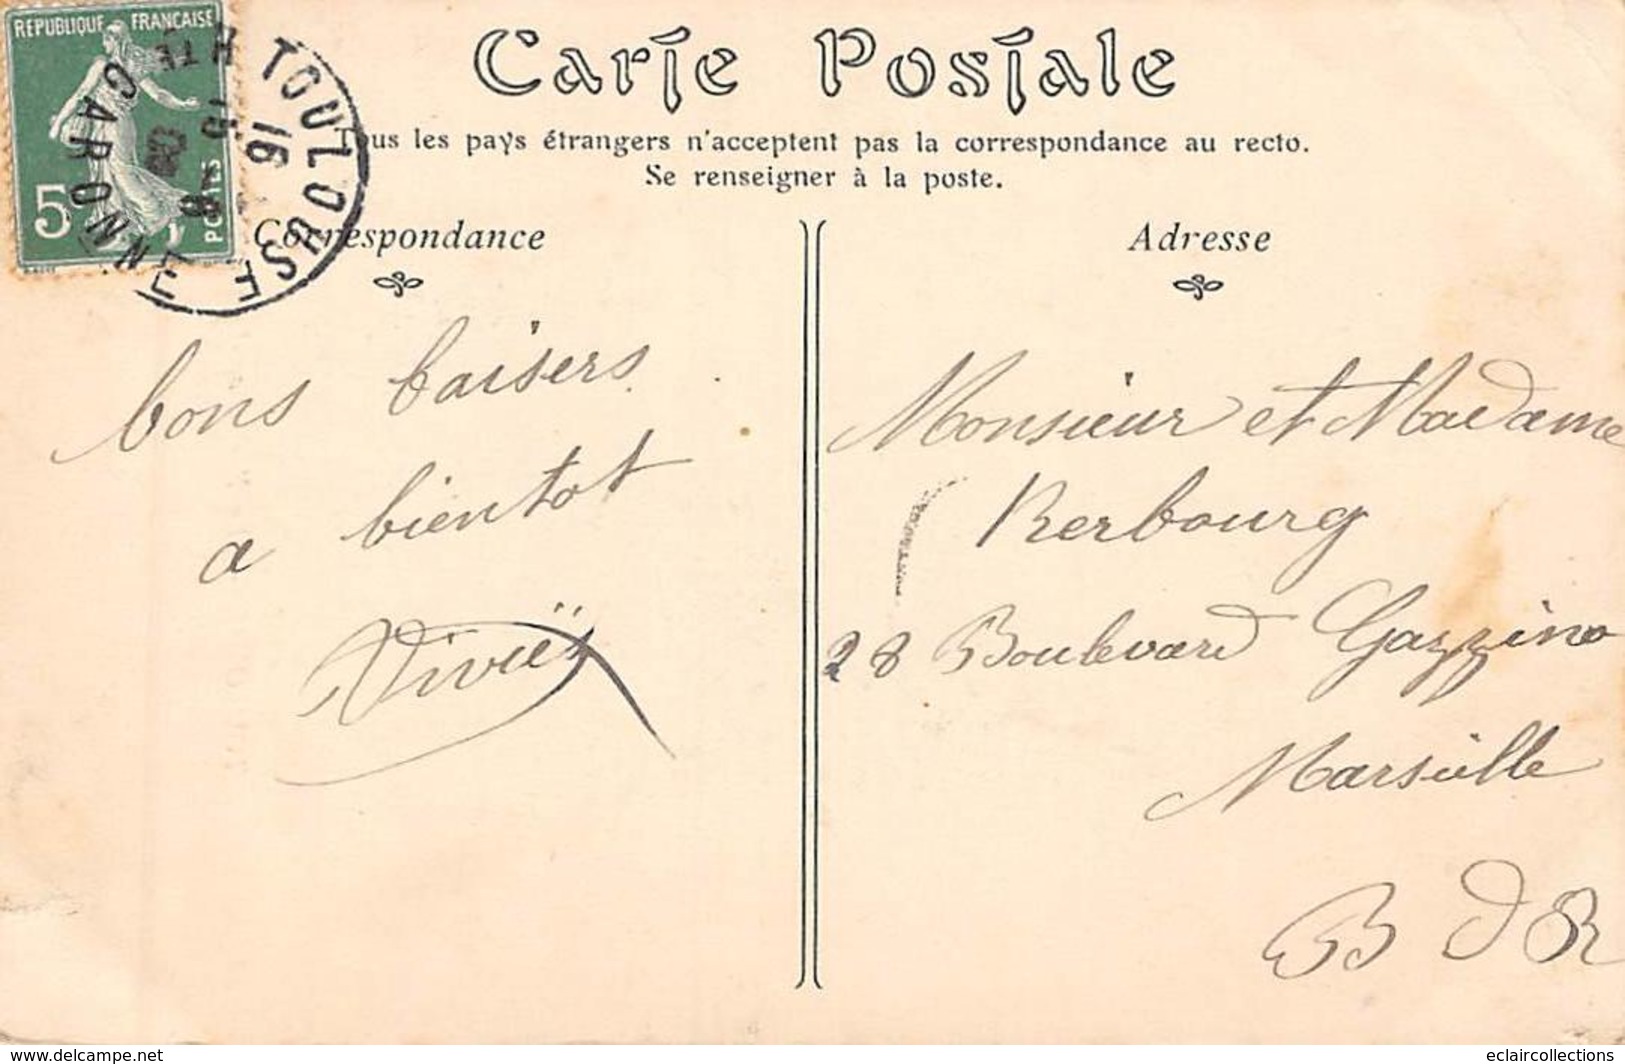 REPUBLIQUE FRANÇAISE
5c POSTES
TOULOUSE
HTE GARONNE
16
Carte Postale
Tous les pays étrangers n'acceptent pas la correspondance au recto.
Se renseigner à la poste.
Correspondance
bons baisers
a bientot
Adresse
Monsieur et Madame
Kerbourg
28 Boulevard Gazzino
Marseille
B d R
www.delcampe.net
eclaircollections